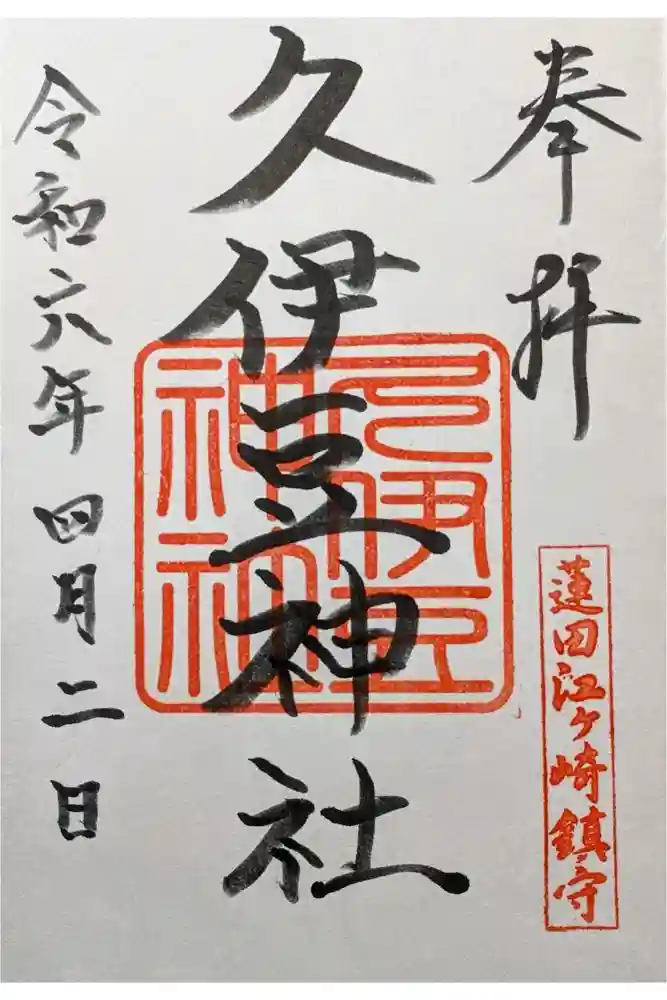 奉拝
蓮田江ヶ崎鎮守
久伊豆神社
令和六年四月二日